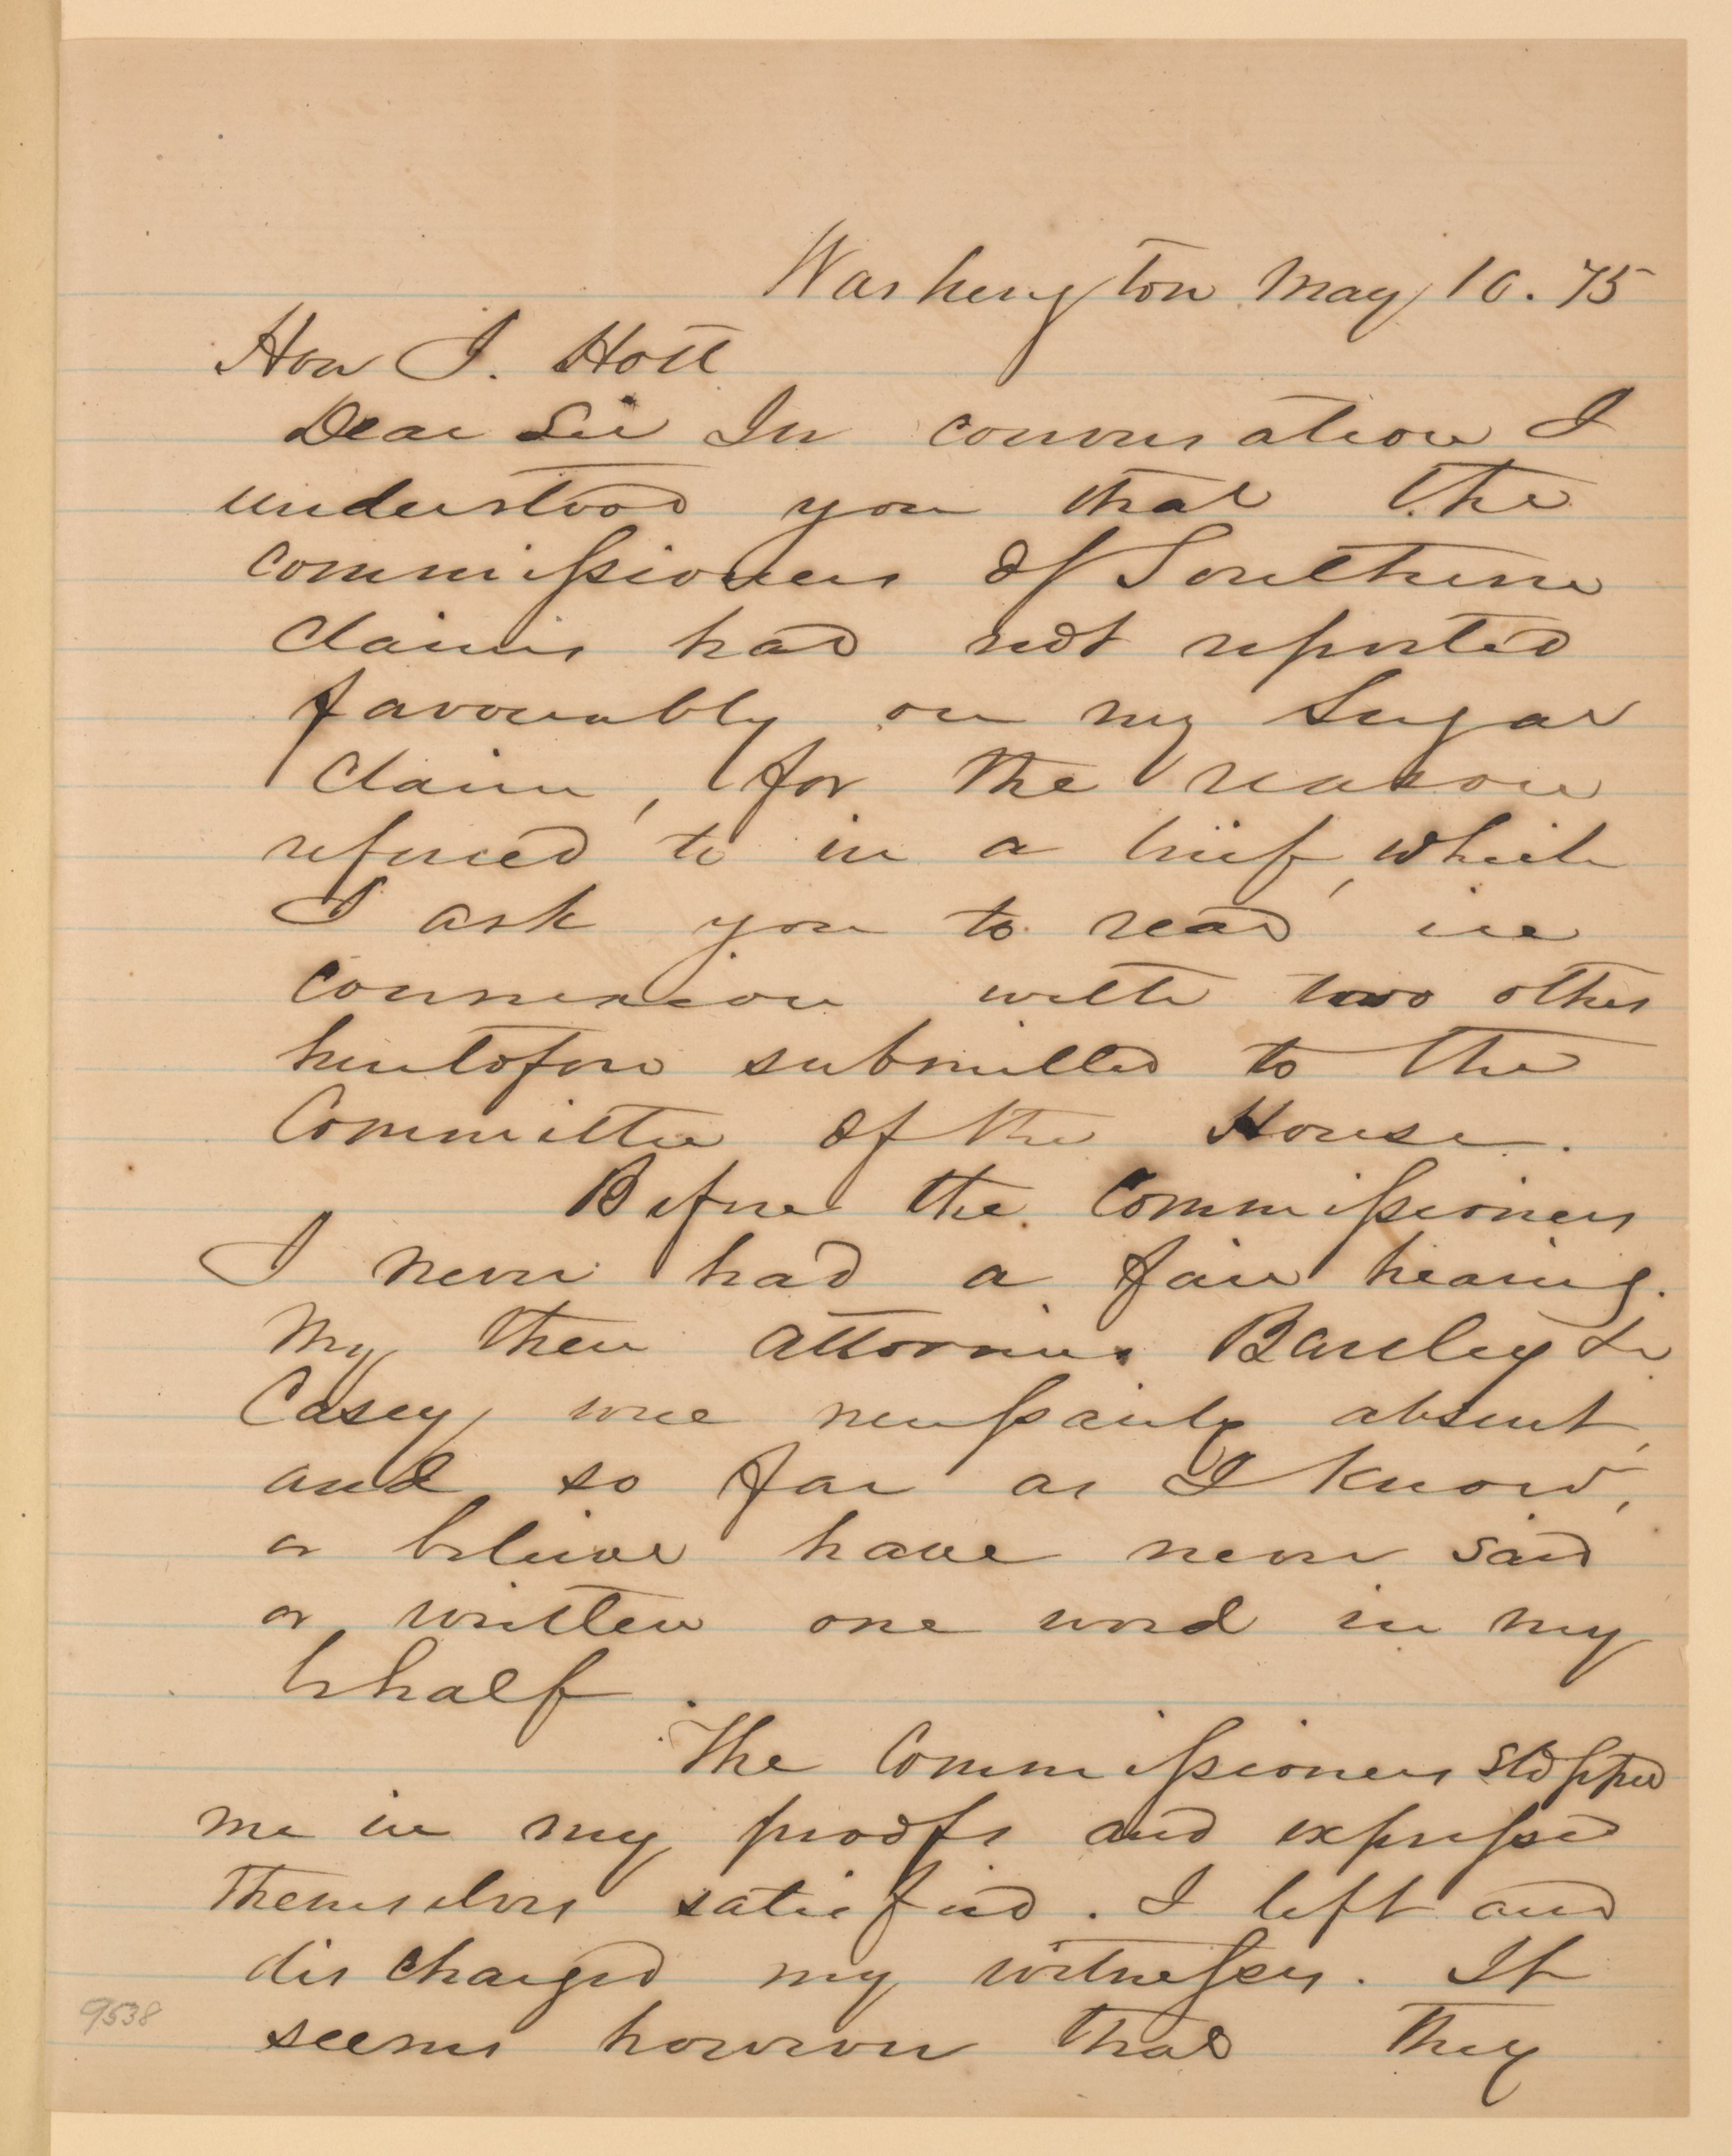 Washington May 10. 75
Hon J. Holt
Dear Sir In conversation I
understood you that the
commissioners of Southern
Claims had not reported
favourably on my Sugar
Claim, for the reason
refered to in a brief, which
I ask you to read in
connexion with two other
heretofore submitted to the
Committee of the House.
Before the Commissioners
I never had a fair hearing.
My then attornies Barley &
Casey were necessarily absent,
and so far as I know,
or believe have never said
or written one word in my
behalf.
The Commissioners stopped
me in my proofs and expressed
themselves satisfied. I left and
discharged my witnesses. It
seems however that they
9538